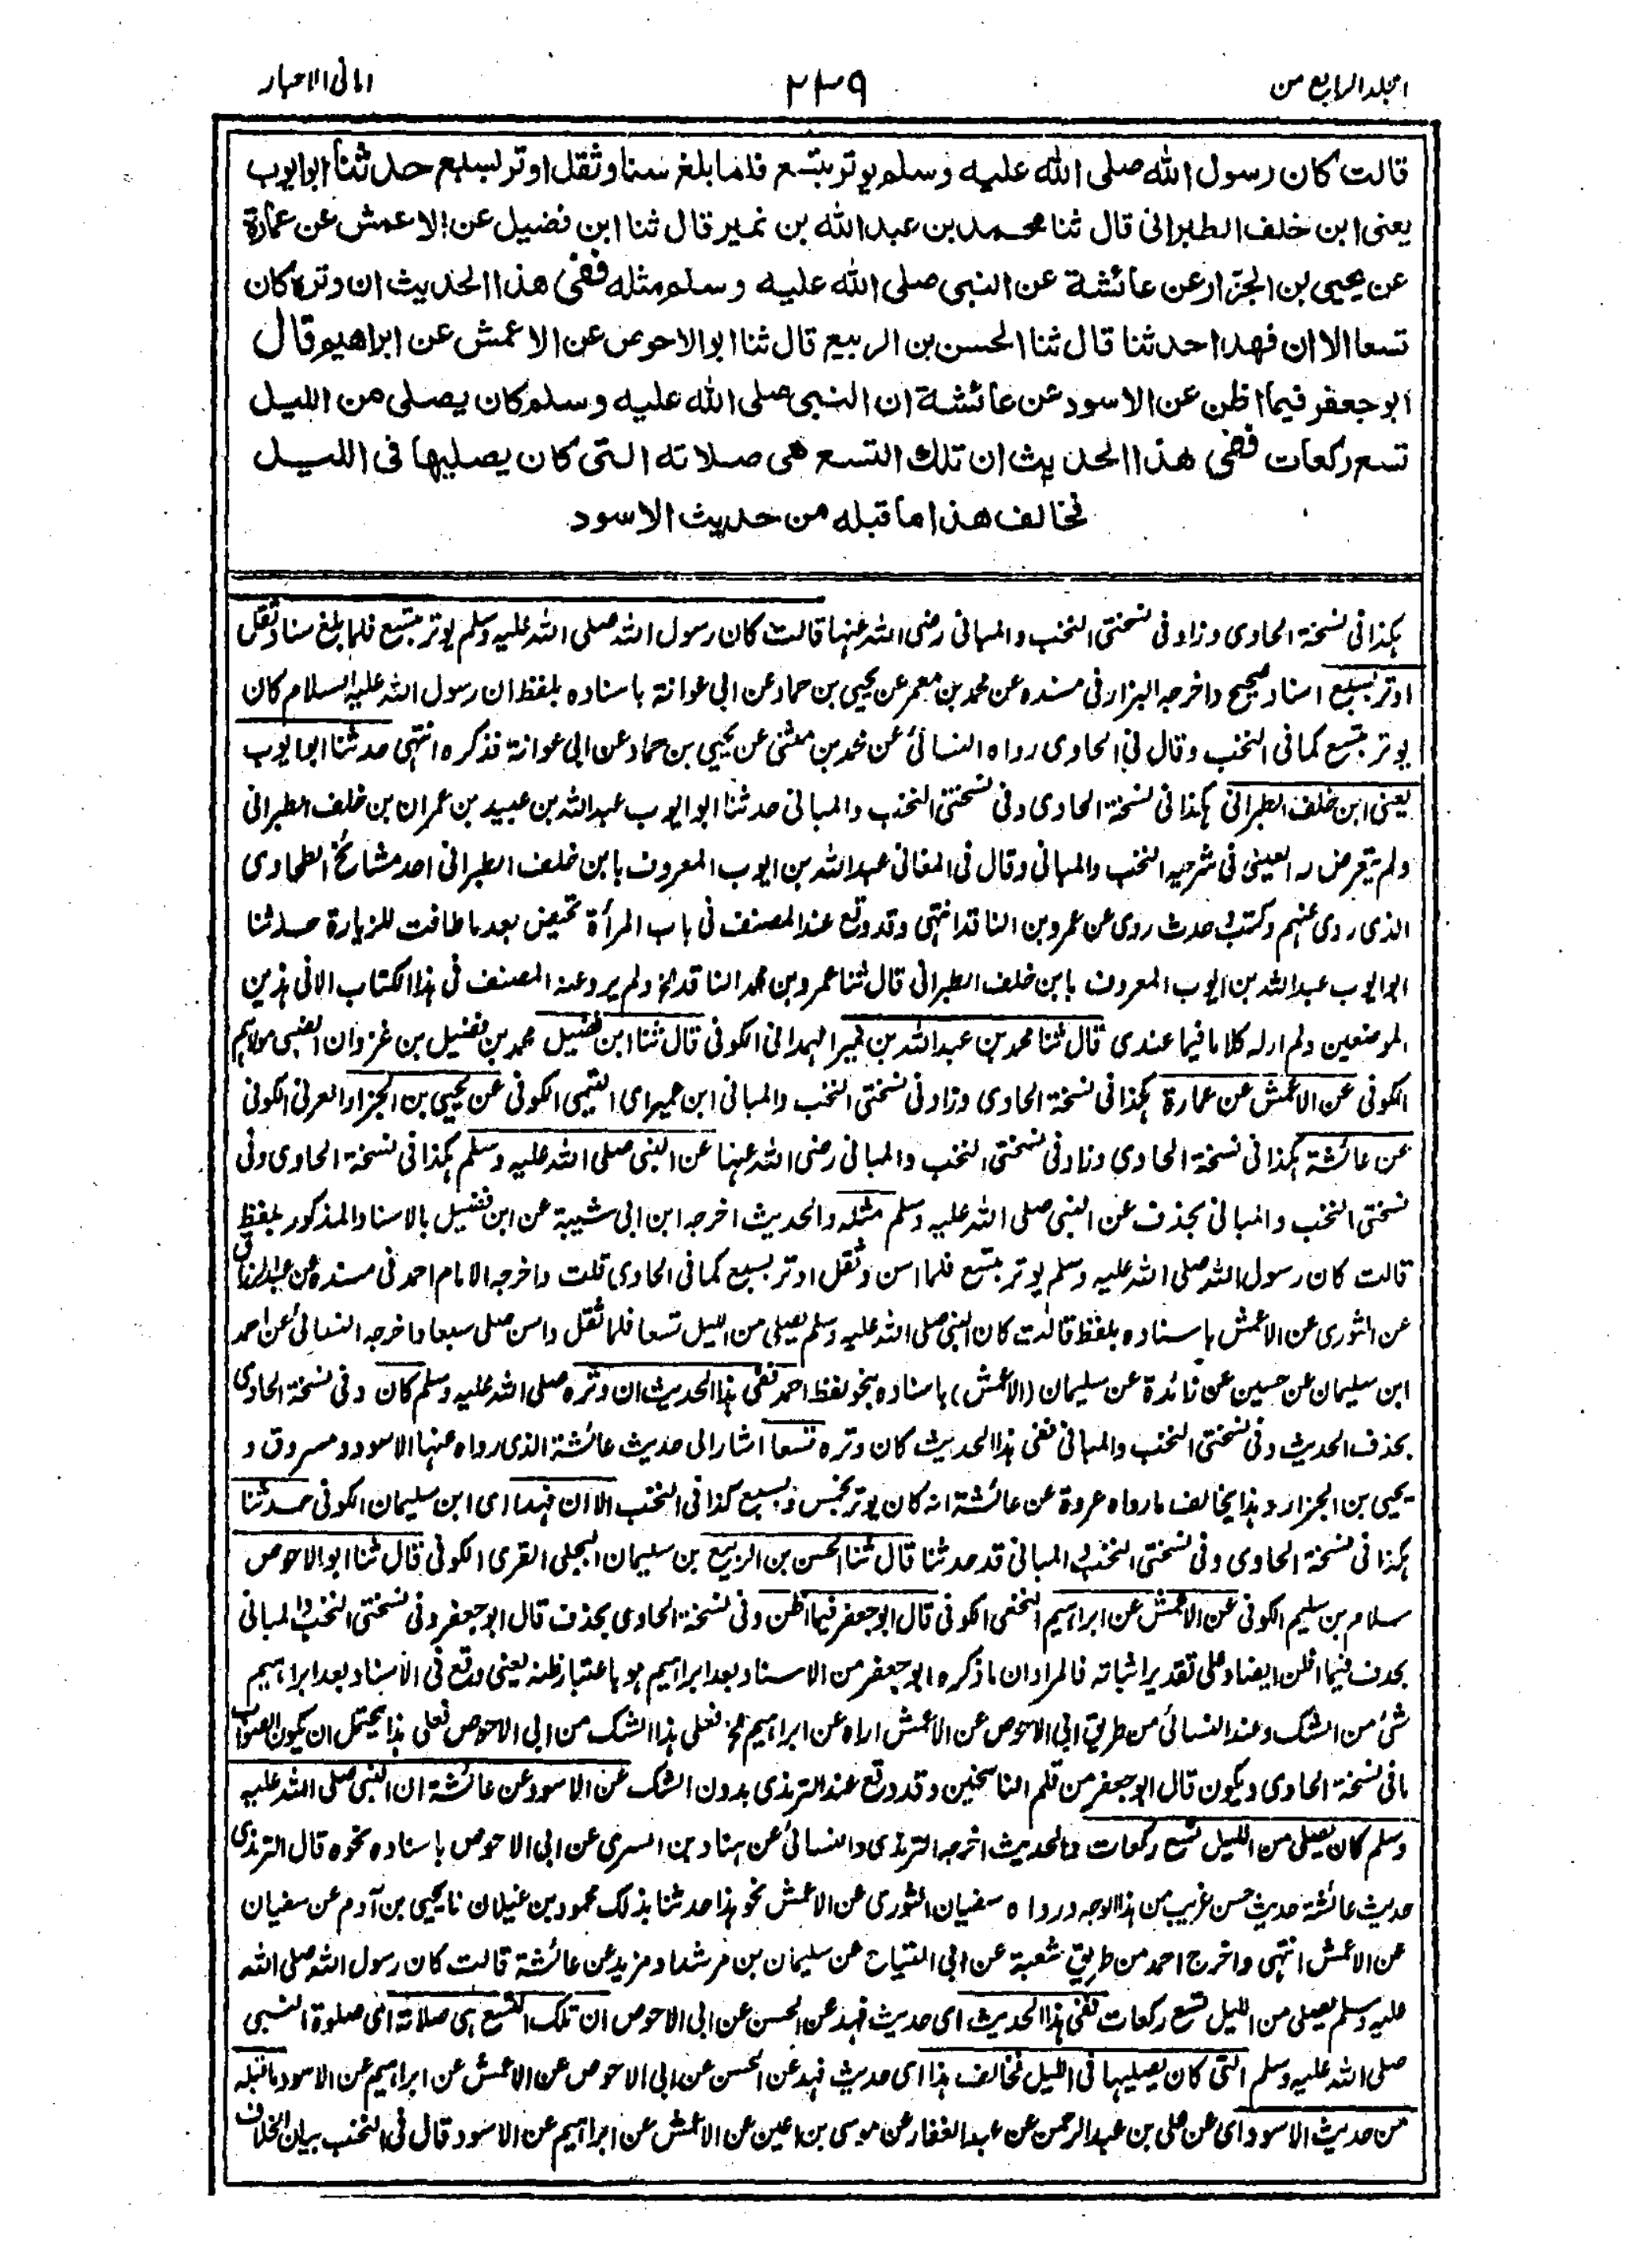 المجلد الرابع من
٢٣٩
امانی الاحبار
قالت كان رسول الله صلى الله عليه وسلم يوتر بتسع فلما بلغ سنا وثقل اوتر بسبع حدثنا ابو ايوب
يعنى ابن خلف الطبرانى قال ثنا محمد بن عبد الله بن نمير قال ثنا ابن فضيل عن الاعمش عن عمارة
عن يحيى بن الجزار عن عائشة عن النبى صلى الله عليه وسلم مثله ففى هذا الحديث ان وتره كان
تسعا الا ان فهدا حدثنا قال ثنا الحسن بن الربيع قال ثنا ابو الاحوص عن الاعمش عن ابراهيم قال
ابو جعفر فيما اظن عن الاسود عن عائشة ان النبى صلى الله عليه وسلم كان يصلى من الليل
تسع ركعات ففى هذا الحديث ان تلك التسع هى صلاته التى كان يصليها فى الليل
فخالف هذا ما قبله من حديث الاسود
هكذا فى نسخة الحاوى وزاد فى نسختى النخب والمبانى رضى الله عنها قالت كان رسول الله صلى الله عليه وسلم يوتر بتسع فلما بلغ سنا وثقل
اوتر بسبع اسناد صحيح واخرجه البزار فى مسنده عن محمد بن معمر عن يحيى بن حماد عن ابى عوانة باسناده بلفظ ان رسول الله عليه السلام كان
يوتر بتسع كما فى النخب وقال فى الحاوى رواه النسائى عن محمد بن مثنى عن يحيى بن حماد عن ابى عوانة فذكره انتهى حدثنا ابو ايوب
يعنى ابن خلف الطبرانى هكذا فى نسخة الحاوى وفى نسختى النخب والمبانى حدثنا ابو ايوب عبد الله بن عبيد بن عمران بن خلف الطبرانى
ولم يتعرض له العينى فى شرحيه النخب والمبانى وقال فى المغانى عبد الله بن ايوب المعروف بابن خلف الطبرانى احد مشائخ الطحاوى
الذى روى عنهم وكتب وحدث روى عن عمرو بن الناقد انتهى وقد وقع عند المصنف فى باب المرأة تحيض بعد ما طافت للزيارة حدثنا
ابو ايوب عبد الله بن ايوب المعروف بابن خلف الطبرانى قال ثنا عمرو بن محمد الناقد الخ ولم يرو عنه المصنف فى هذا الكتاب الا فى هذين
الموضعين ولم ار له كلاما فيما عندى قال ثنا محمد بن عبد الله بن نمير الهمدانى الكوفى قال ثنا ابن فضيل محمد بن فضيل بن غزوان الضبى مولاهم
الكوفى عن الاعمش عن عمارة هكذا فى نسخة الحاوى وزاد فى نسختى النخب والمبانى ابن عمير اى التيمى الكوفى عن يحيى بن الجزار العرنى الكوفى
عن عائشة هكذا فى نسخة الحاوى وزاد فى نسختى النخب والمبانى رضى الله عنها عن النبى صلى الله عليه وسلم هكذا فى نسخة الحاوى وفى
نسختى النخب والمبانى بحذف عن النبى صلى الله عليه وسلم مثله والحديث اخرجه ابن ابى شيبة عن ابن فضيل بالاسناد المذكور بلفظ
قالت كان رسول الله صلى الله عليه وسلم يوتر بتسع فلما اسن وثقل اوتر بسبع كما فى الحاوى قلت واخرجه الامام احمد فى مسنده عن عبد الرزاق
عن الثورى عن الاعمش باسناده بلفظ قالت كان النبى صلى الله عليه وسلم يصلى من الليل تسعا فلما ثقل واسن صلى سبعا واخرجه النسائى عن احمد
ابن سليمان عن حسين عن زائدة عن سليمان (الاعمش) باسناده بنحو لفظ احمد ففى هذا الحديث ان وتره صلى الله عليه وسلم كان وفى نسخة الحاوى
بحذف الحديث وفى نسختى النخب والمبانى ففى هذا الحديث كان وتره تسعا اشار الى حديث عائشة الذى رواه عنها الاسود ومسروق و
يحيى بن الجزار وهذا يخالف ما رواه عروة عن عائشة انه كان يوتر بخمس وبسبع كذا فى النخب الا ان فهدا اى ابن سليمان الكوفى حدثنا
هكذا فى نسخة الحاوى وفى نسختى النخب والمبانى قد حدثنا قال ثنا الحسن بن الربيع بن سليمان البجلى القرى الكوفى قال ثنا ابو الاحوص
سلام بن سليم الكوفى عن الاعمش عن ابراهيم النخعى الكوفى قال ابو جعفر فيما اظن وفى نسخة الحاوى بحذف قال ابو جعفر وفى نسختى النخب والمبانى
بحذف فيما اظن ايضا وعلى تقدير اثباته فالمراد ان ما ذكره ابو جعفر من الاسناد بعد ابراهيم هو باعتبار ظنه يعنى وقع فى الاسناد بعد ابراهيم
شئ من الشك وعند النسائى من طريق ابى الاحوص عن الاعمش اراه عن ابراهيم الخ فعلى هذا الشك من ابى الاحوص فعلى هذا يحتمل ان يكون الصواب
ما فى نسخة الحاوى ويكون قال ابو جعفر من قلم الناسخين وقد وقع عند الترمذى بدون الشك عن الاسود عن عائشة ان النبى صلى الله عليه
وسلم كان يصلى من الليل تسع ركعات والحديث اخرجه الترمذى والنسائى عن هناد بن السرى عن ابى الاحوص باسناده نحوه قال الترمذى
حديث عائشة حديث حسن غريب من هذا الوجه ورواه سفيان الثورى عن الاعمش نحو هذا حدثنا بذلك محمود بن غيلان نا يحيى بن آدم عن سفيان
عن الاعمش انتهى واخرج احمد من طريق شعبة عن ابى التياح عن سليمان بن مرشد او مزيد عن عائشة قالت كان رسول الله صلى الله
عليه وسلم يصلى من الليل تسع ركعات ففى هذا الحديث اى حديث فهد عن الحسن عن ابى الاحوص ان تلك التسع هى صلاته اى صلوة النبى
صلى الله عليه وسلم التى كان يصليها فى الليل فخالف هذا اى حديث فهد عن الحسن عن ابى الاحوص عن الاعمش عن ابراهيم عن الاسود ما قبله
من حديث الاسود اى عن على بن عبد الرحمن عن عبد الغفار عن موسى بن اعين عن الاعمش عن ابراهيم عن الاسود قال فى النخب بيان الخلاف